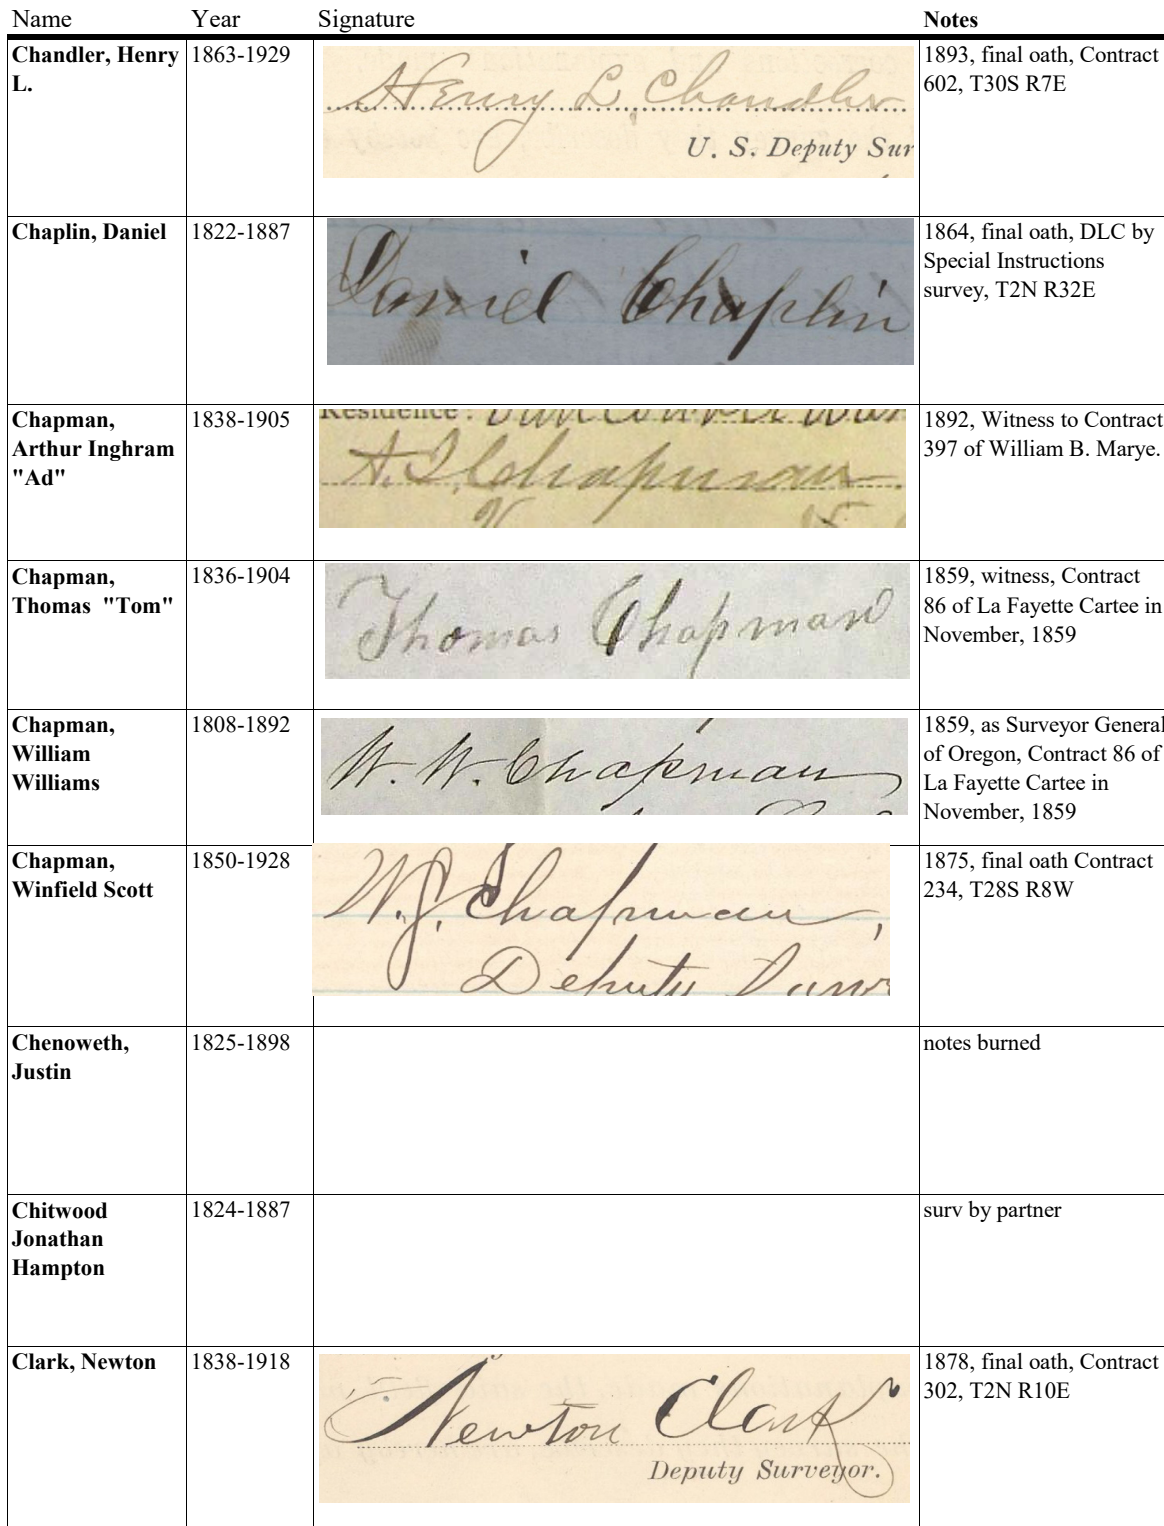 Name Year Signature Notes
Chandler, Henry L. 1863-1929
Henry L. Chandler
U. S. Deputy Sur
1893, final oath, Contract
602, T30S R7E
Chaplin, Daniel 1822-1887
Daniel Chaplin
1864, final oath, DLC by
Special Instructions
survey, T2N R32E
Chapman,
Arthur Inghram
"Ad"
1838-1905
Residence:
A. I. Chapman
1892, Witness to Contract
397 of William B. Marye.
Chapman,
Thomas "Tom"
1836-1904
Thomas Chapman
1859, witness, Contract
86 of La Fayette Cartee in
November, 1859
Chapman,
William
Williams
1808-1892
W. W. Chapman
1859, as Surveyor General
of Oregon, Contract 86 of
La Fayette Cartee in
November, 1859
Chapman,
Winfield Scott
1850-1928
W. S. Chapman,
Deputy Surv
1875, final oath Contract
234, T28S R8W
Chenoweth,
Justin
1825-1898
notes burned
Chitwood
Jonathan
Hampton
1824-1887
surv by partner
Clark, Newton 1838-1918
Newton Clark
Deputy Surveyor.
1878, final oath, Contract
302, T2N R10E